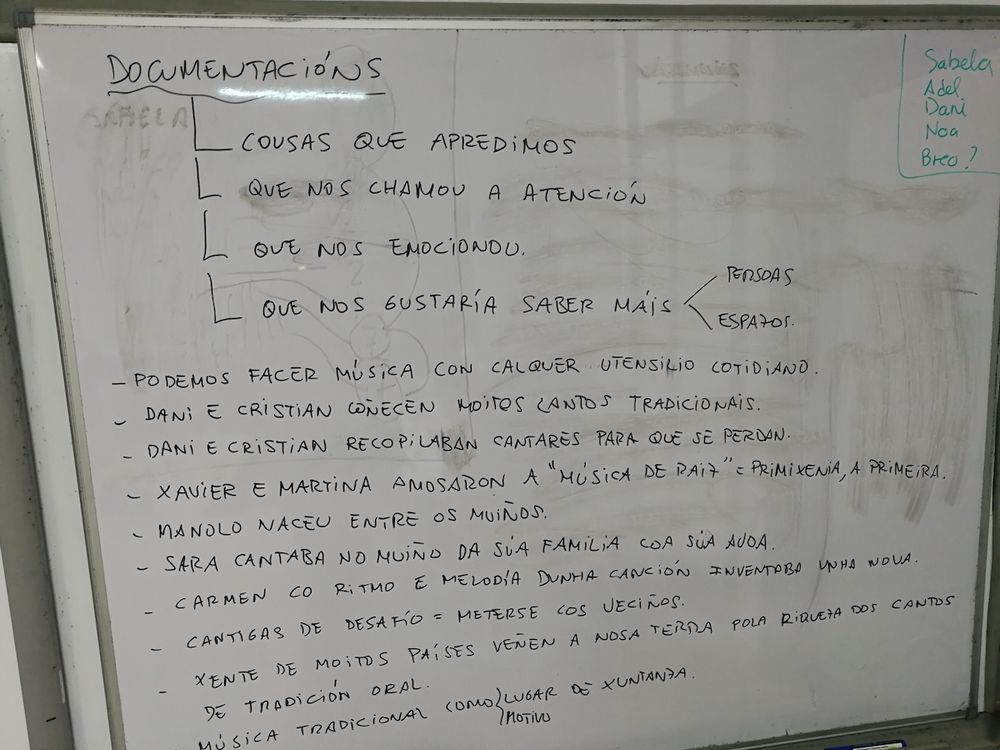 DOCUMENTACIÓNS
COUSAS QUE APREDIMOS
QUE NOS CHAMOU A ATENCIÓN
QUE NOS EMOCIONOU.
QUE NOS GUSTARÍA SABER MÁIS
PERSOAS
ESPAZOS.
Sabela
Adel
Dani
Noa
Breo?
SABELA
- PODEMOS FACER MÚSICA CON CALQUER UTENSILIO COTIDIANO.
- DANI E CRISTIAN COÑECEN MOITOS CANTOS TRADICIONAIS.
- DANI E CRISTIAN RECOPILABAN CANTARES PARA QUE SE PERDAN.
- XAVIER E MARTINA AMOSARON A "MÚSICA DE RAIZ" = PRIMIXENIA, A PRIMEIRA.
- MANOLO NACEU ENTRE OS MUIÑOS.
- SARA CANTABA NO MUIÑO DA SÚA FAMILIA COA SÚA AVOA.
- CARMEN CO RITMO E MELODÍA DUNHA CANCIÓN INVENTABA UNHA NOVA.
- CANTIGAS DE DESAFÍO = METERSE COS VECIÑOS.
- XENTE DE MOITOS PAÍSES VEÑEN A NOSA TERRA POLA RIQUEZA DOS CANTOS
DE TRADICIÓN ORAL.
MÚSICA TRADICIONAL COMO LUGAR DE XUNTANZA.
MOTIVO